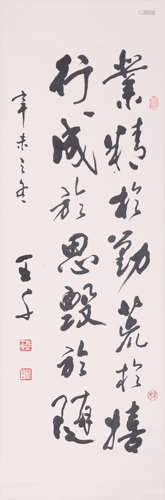 業精於勤荒於嬉
行成於思毀於隨
辛未之冬
王